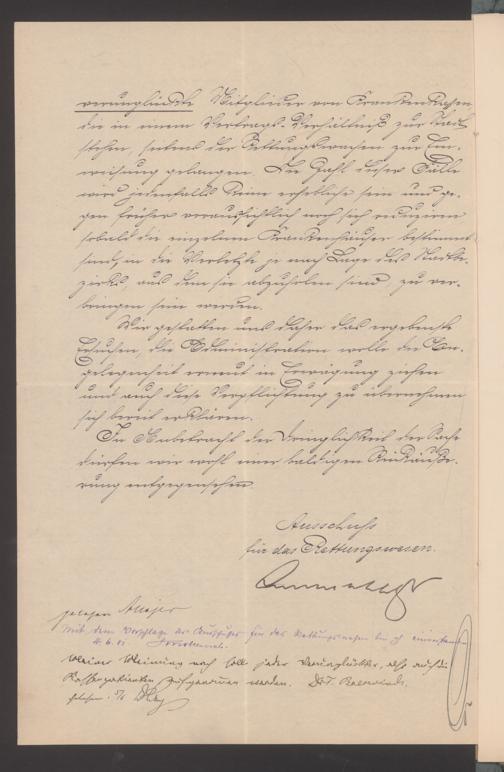 verunglückte Mitglieder von Krankenkassen,
die in einem Vertrags-Verhältniß zur Stadt
stehen, seitens der Rettungswachen zur Ein-
weisung gelangen. Die Zahl dieser Fälle
wird jedenfalls keine erhebliche sein und ge-
gen früher voraussichtlich noch sich reduziren
sobald die einzelnen Krankenhäuser bestimmt
sind, in die Verletzte je nach Lage des Stadtbe-
zirks, aus dem sie abzuholen sind, zu ver-
bringen sein werden.
Wir gestatten uns daher das ergebenste
Ersuchen, die Administration wolle die An-
gelegenheit erneut in Erwägung ziehen
und auch diese Verpflichtung zu übernehmen
sich bereit erklären.
In Anbetracht der Dringlichkeit der Sache
dürfen wir wohl einer baldigen Rückäuße-
rung entgegensehen.
Ausschuß
für das Rettungswesen.
gelesen
Mit dem Vorschlage des Ausschußes für das Rettungswesen bin ich einverstanden
Meiner Meinung nach soll jeder Verunglückte, also auch die
Kassenpatienten aufgenommen werden. Dr.
gelesen